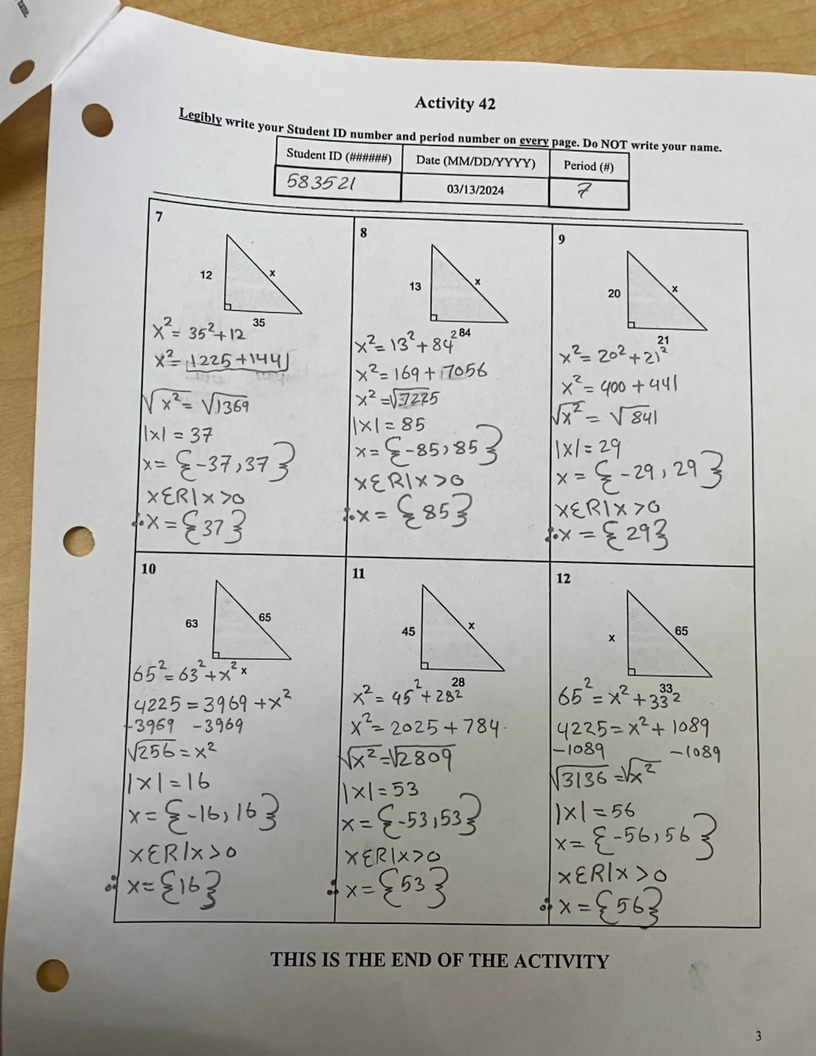 Activity 42
Legibly write your Student ID number and period number on every page. Do NOT write your name.
Student ID (######) Date (MM/DD/YYYY) Period (#)
583521 03/13/2024 7
7
12
x
35
x²=35²+12
x²=1225+144
√x²=√1369
|x|=37
x={-37,37}
xεR|x>0
∴x={37}
8
13
x
84
x²=13²+84²
x²=169+7056
x²=√7225
|x|=85
x={-85,85}
xεR|x>0
∴x={85}
9
20
x
21
x²=20²+21²
x²=400+441
√x²=√841
|x|=29
x={-29,29}
xεR|x>0
∴x={29}
10
63
65
x
65²=63²+x²
4225=3969+x²
-3969 -3969
√256=x²
|x|=16
x={-16,16}
xεR|x>0
∴x={16}
11
45
x
28
x²=45²+28²
x²=2025+784
√x²=√2809
|x|=53
x={-53,53}
xεR|x>0
∴x={53}
12
x
65
33
65²=x²+33²
4225=x²+1089
-1089 -1089
√3136=√x²
|x|=56
x={-56,56}
xεR|x>0
∴x={56}
THIS IS THE END OF THE ACTIVITY
3